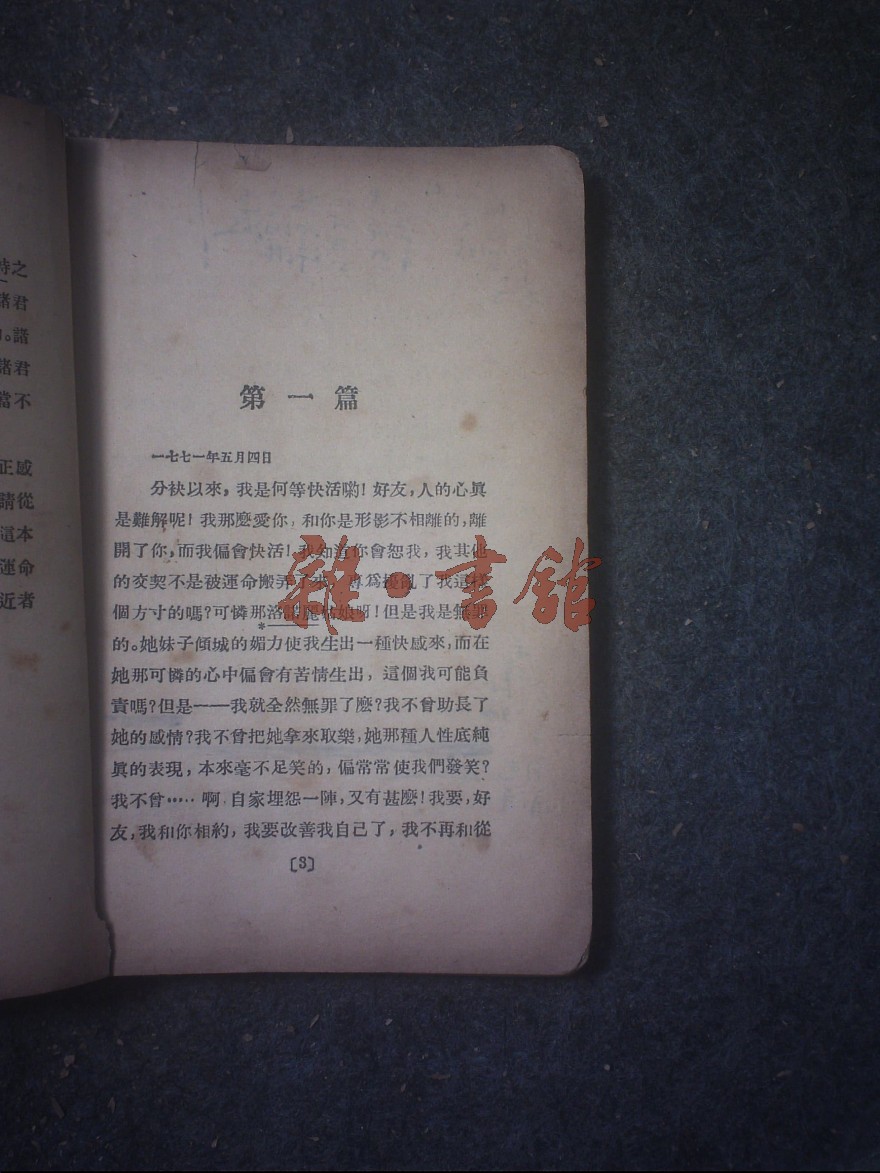 時之
諸君
。諸
諸君
當不
正感
請從
這本
運命
近者
第一篇
一七七一年五月四日
分袂以來，我是何等快活喲！好友，人的心眞
是難解呢！我那麼愛你，和你是形影不相離的，離
開了你，而我偏會快活！我知道你會恕我，我其他
的交契不是被運命搬弄了來，專爲擾亂了我這樣
個方寸的嗎？可憐那洛諾麗姑娘呀！但是我是無罪
的。她妹子傾城的媚力使我生出一種快感來，而在
她那可憐的心中偏會有苦情生出，這個我可能負
責嗎？但是——我就全然無罪了麽？我不曾助長了
她的感情？我不曾把她拿來取樂，她那種人性底純
眞的表現，本來毫不足笑的，偏常常使我們發笑？
我不曾……啊，自家埋怨一陣，又有甚麽！我要，好
友，我和你相約，我要改善我自己了，我不再和從
〔3〕
雜·書館